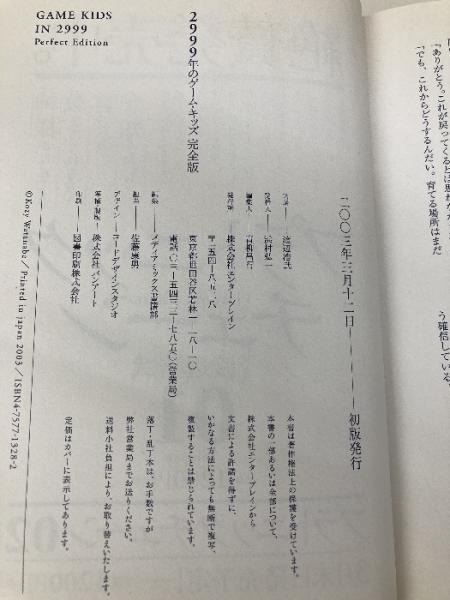 GAME KIDS
IN 2999
Perfect Edition
2999年のゲーム・キッズ 完全版
二〇〇三年三月十二日――初版発行
渡辺浩弐
浜村弘一
株式会社エンターブレイン
〒一五四-八五二八
東京都世田谷区若林一-一八-一〇
電話〇三-五四三三-七八五〇(営業局)
メディアミックス書籍部
佐藤康男
デザイン――コードデザインスタジオ
株式会社パンアート
印刷――図書印刷株式会社
本書は著作権法上の保護を受けています。
本書の一部あるいは全部について、
株式会社エンターブレインから
文書による許諾を得ずに、
いかなる方法によっても無断で複写、
複製することは禁じられています。
落丁・乱丁本は、お手数ですが
弊社営業局までお送りください。
送料小社負担により、お取り替えいたします。
定価はカバーに表示してあります。
©Kozy Watanabe / Printed in japan 2003 / ISBN4-7577-1328-2
「ありがとう。これが戻ってくるとは思わ
「でも、これからどうするんだい。育てる場所はまだ
う確信している。